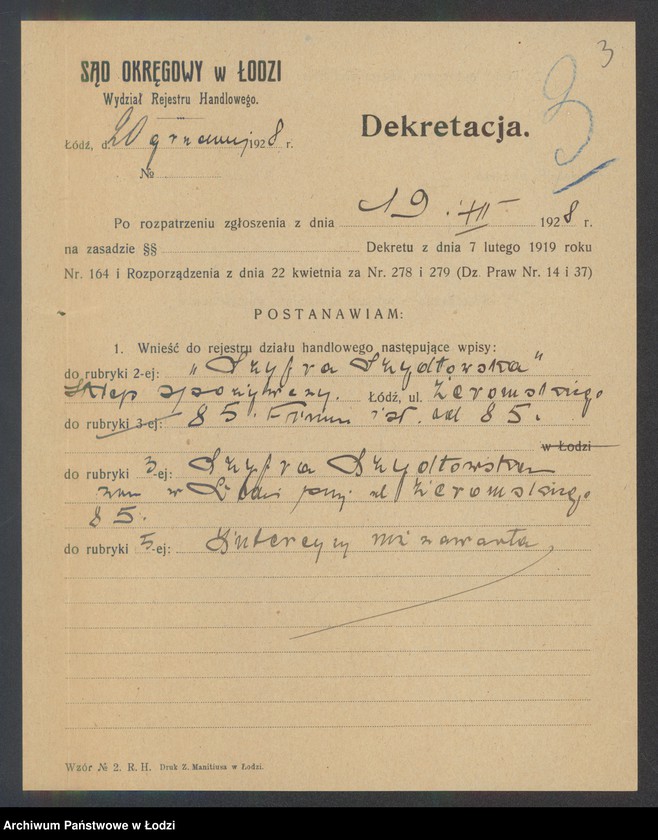 3
SĄD OKRĘGOWY w ŁODZI
Wydział Rejestru Handlowego.
3
Dekretacja.
Łódź, d. 20 grudnia 1928 r.
№
Po rozpatrzeniu zgłoszenia z dnia 19. XII 1928 r.
na zasadzie §§ Dekretu z dnia 7 lutego 1919 roku
Nr. 164 i Rozporządzenia z dnia 22 kwietnia za Nr. 278 i 279 (Dz. Praw Nr. 14 i 37)
POSTANAWIAM:
1. Wnieść do rejestru działu handlowego następujące wpisy:
do rubryki 2-ej: "Szyfra Szydłowska"
Sklep spożywczy. Łódź, ul. Żeromskiego
do rubryki 3-ej: 85. Firma ist. od 85.
w Łodzi
do rubryki 3-ej: Szyfra Szydłowska
zam w Łodzi przy ul Żeromskiego
85.
do rubryki 5-ej: Intercyzy nie zawarła
Wzór № 2. R. H. Druk Z. Manitiusa w Łodzi.
Archiwum Państwowe w Łodzi